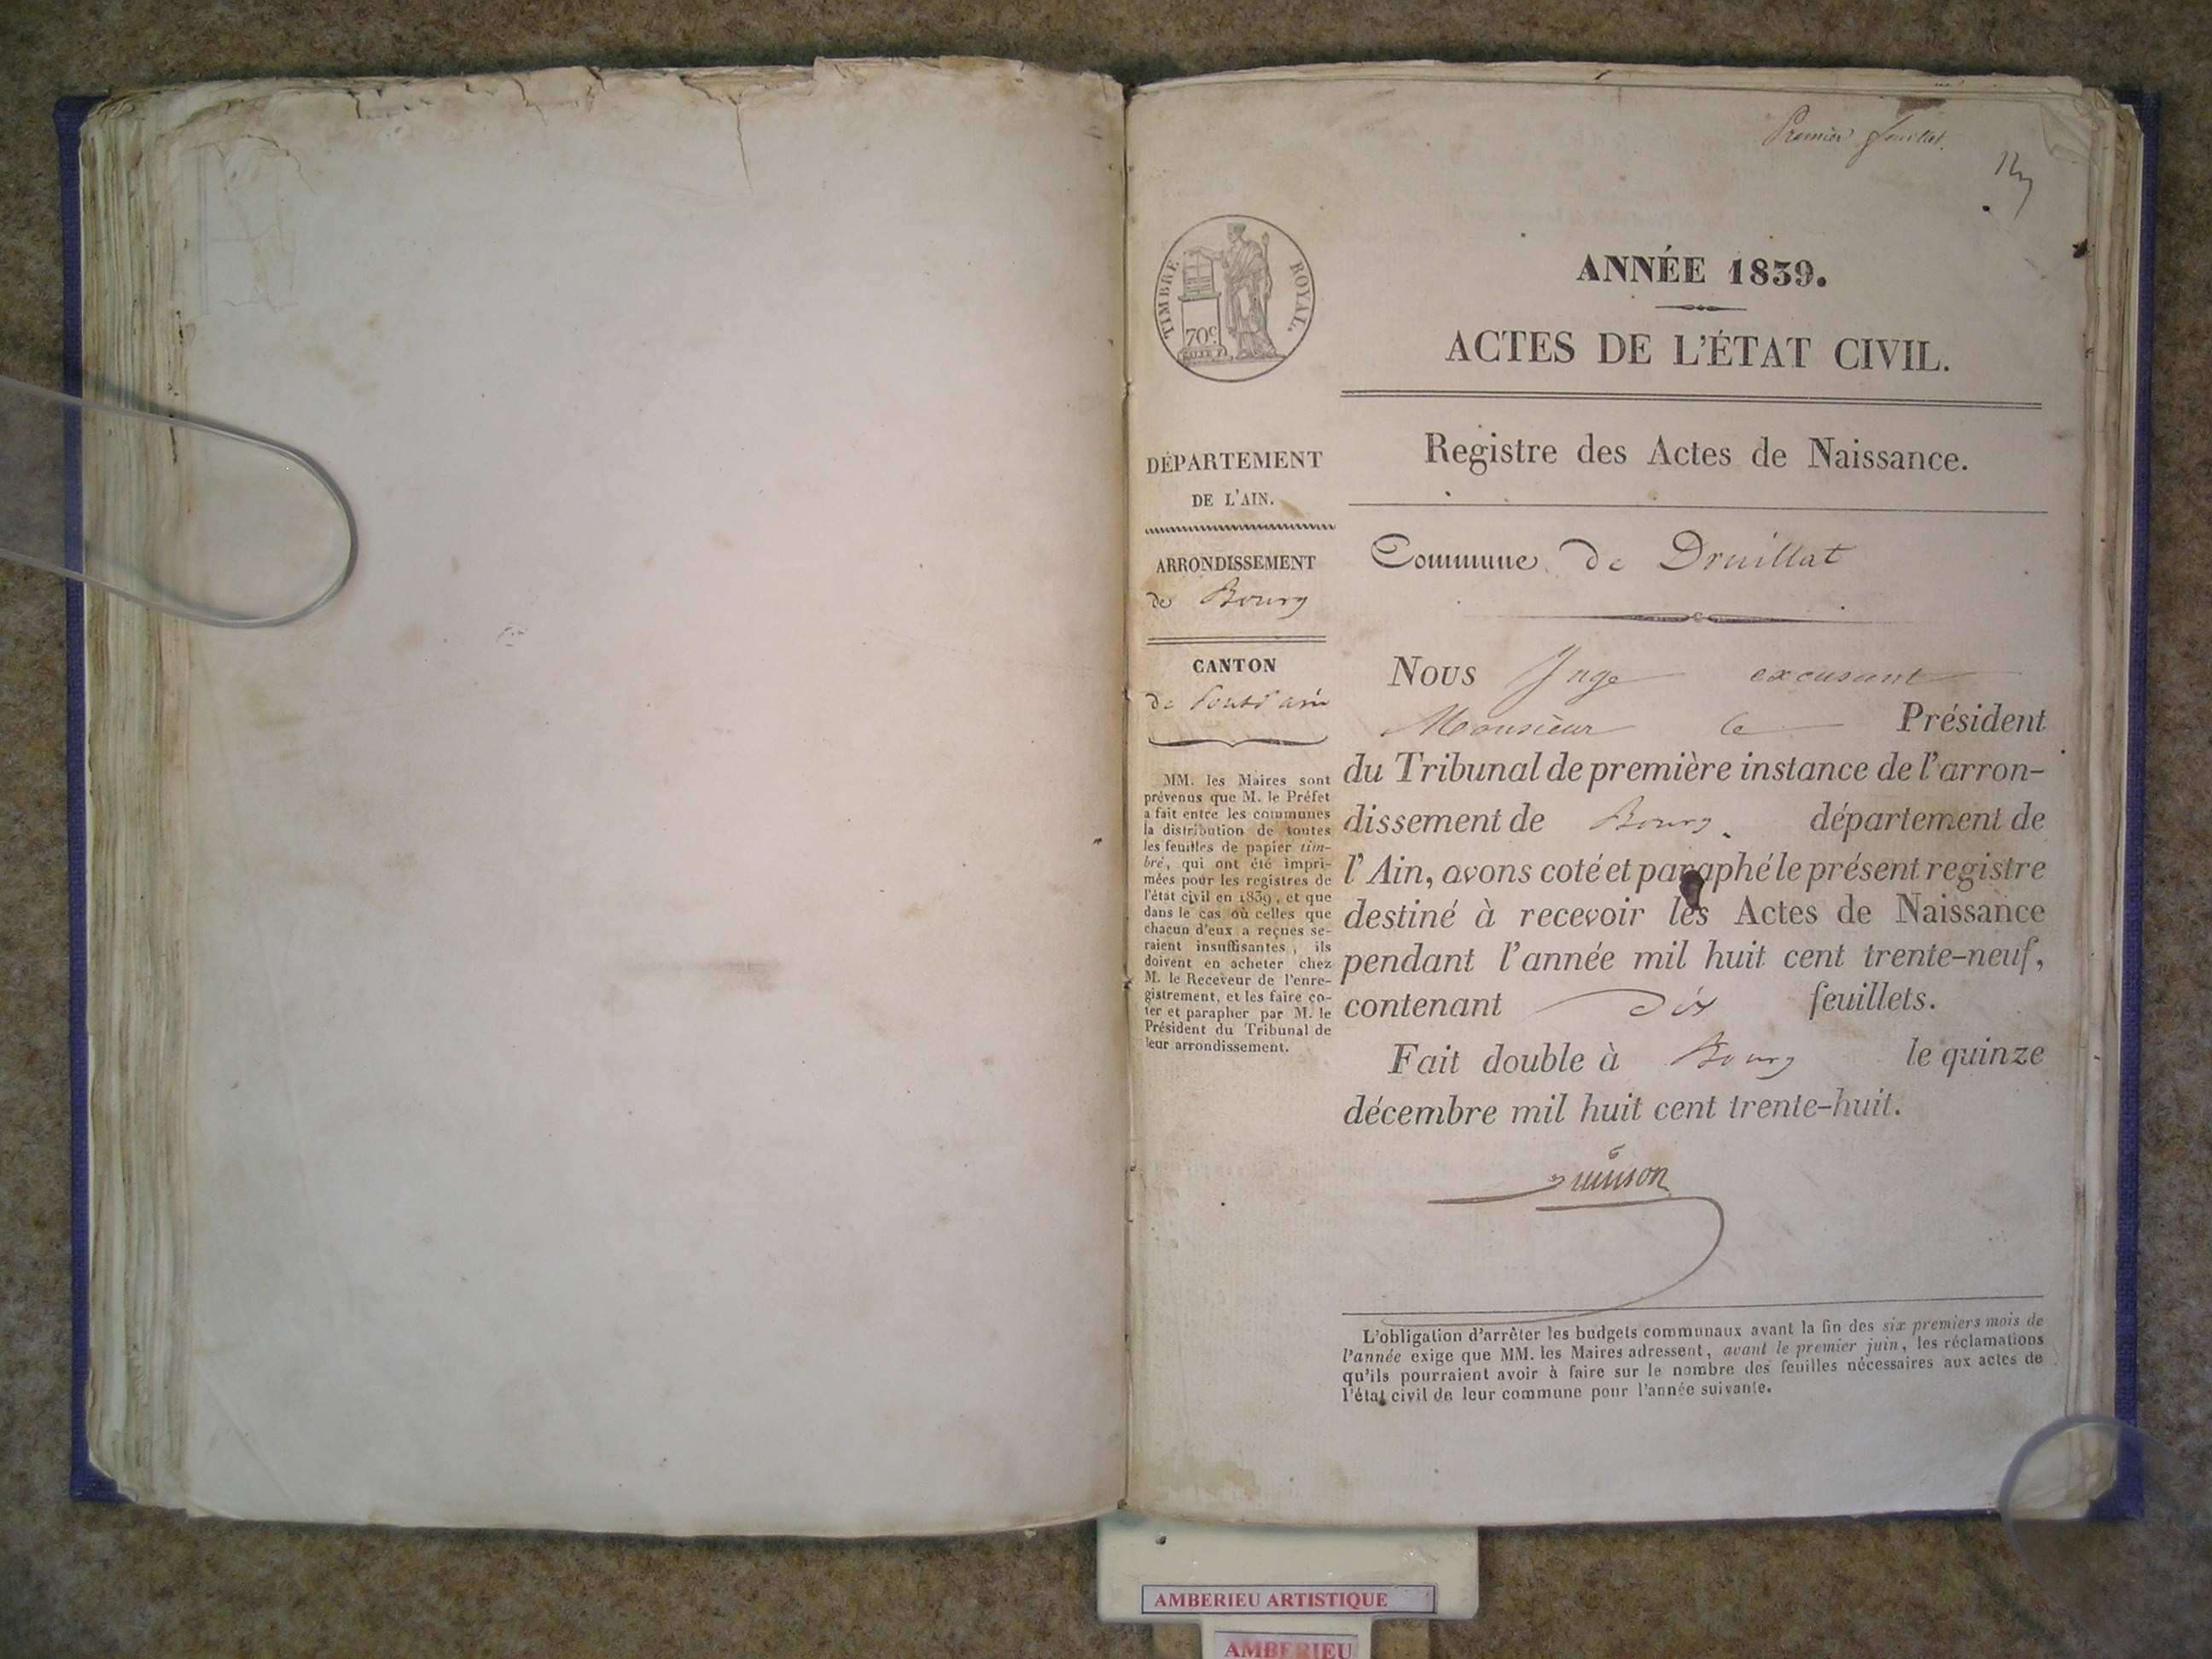 Premier feuillet.
TIMBRE ROYAL.
70c
ANNÉE 1839.
ACTES DE L'ÉTAT CIVIL.
Registre des Actes de Naissance.
Commune de Druillat
DÉPARTEMENT
DE L'AIN.
ARRONDISSEMENT
de Bourg
CANTON
de Pont d'ain
MM. les Maires sont
prévenus que M. le Préfet
a fait entre les communes
la distribution de toutes
les feuilles de papier tim-
bré, qui ont été impri-
mées pour les registres de
l'état civil en 1839, et que
dans le cas où celles que
chacun d'eux a reçues se-
raient insuffisantes, ils
doivent en acheter chez
M. le Receveur de l'enre-
gistrement, et les faire co-
ter et parapher par M. le
Président du Tribunal de
leur arrondissement.
Nous Juge excusant
Monsieur le Président
du Tribunal de première instance de l'arron-
dissement de Bourg. département de
l'Ain, avons coté et paraphé le présent registre
destiné à recevoir les Actes de Naissance
pendant l'année mil huit cent trente-neuf,
contenant dix feuillets.
Fait double à Bourg le quinze
décembre mil huit cent trente-huit.
L'obligation d'arrêter les budgets communaux avant la fin des six premiers mois de
l'année exige que MM. les Maires adressent, avant le premier juin, les réclamations
qu'ils pourraient avoir à faire sur le nombre des feuilles nécessaires aux actes de
l'état civil de leur commune pour l'année suivante.
AMBERIEU ARTISTIQUE
AMBERIEU